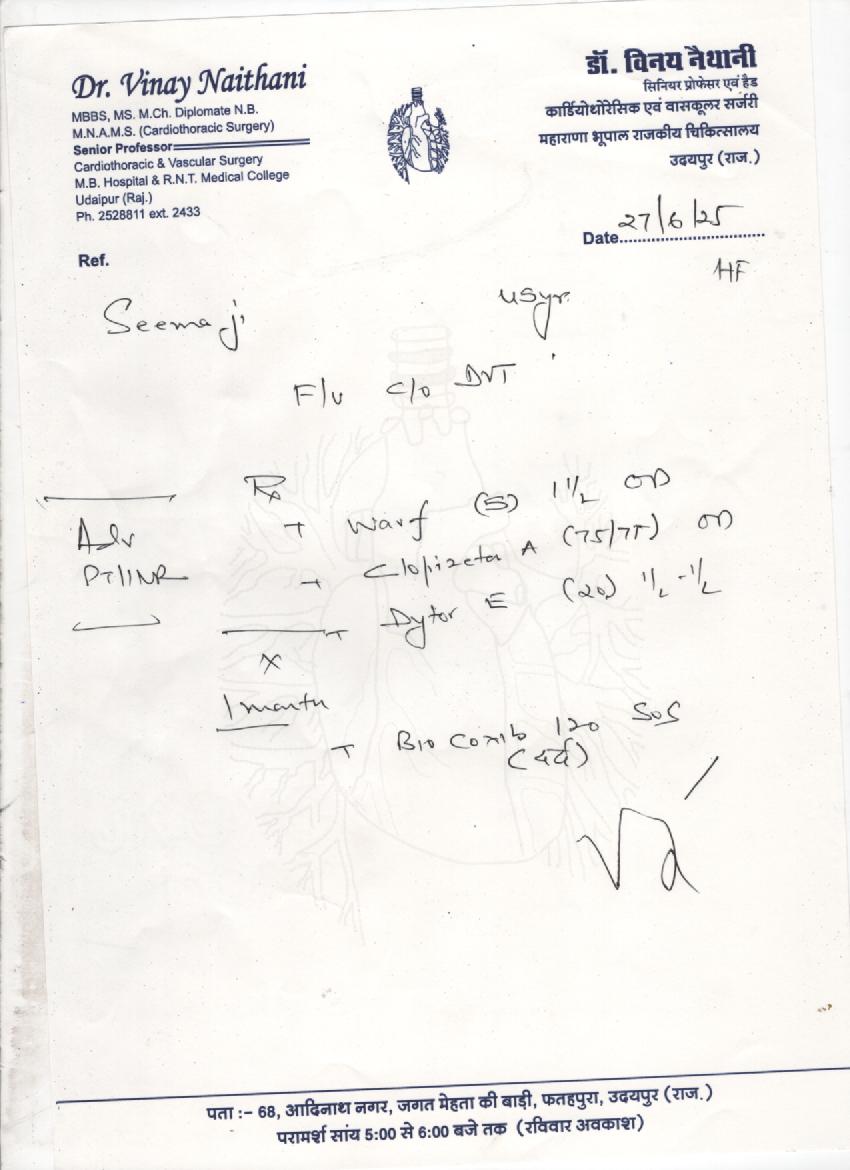 Dr. Vinay Naithani
MBBS, MS. M.Ch. Diplomate N.B.
M.N.A.M.S. (Cardiothoracic Surgery)
Senior Professor
Cardiothoracic & Vascular Surgery
M.B. Hospital & R.N.T. Medical College
Udaipur (Raj.)
Ph. 2528811 ext. 2433
डॉ. विनय नैथानी
सिनियर प्रोफेसर एवं हैड
कार्डियोथोरेसिक एवं वासकूलर सर्जरी
महाराणा भूपाल राजकीय चिकित्सालय
उदयपुर (राज.)
Date 27/6/25
Ref.
HF
Seema ji
F/u c/o DVT
Rx
Adv
PT/INR
T Warf (5) 1 1/2 OD
T Clopizeta A (75/75) OD
T Dytor E (20) 1/2 - 1/2
x
1 month
T Bio Coxib 120 SOS
(दर्द)
पता :– 68, आदिनाथ नगर, जगत मेहता की बाड़ी, फतहपुरा, उदयपुर (राज.)
परामर्श सांय 5:00 से 6:00 बजे तक (रविवार अवकाश)